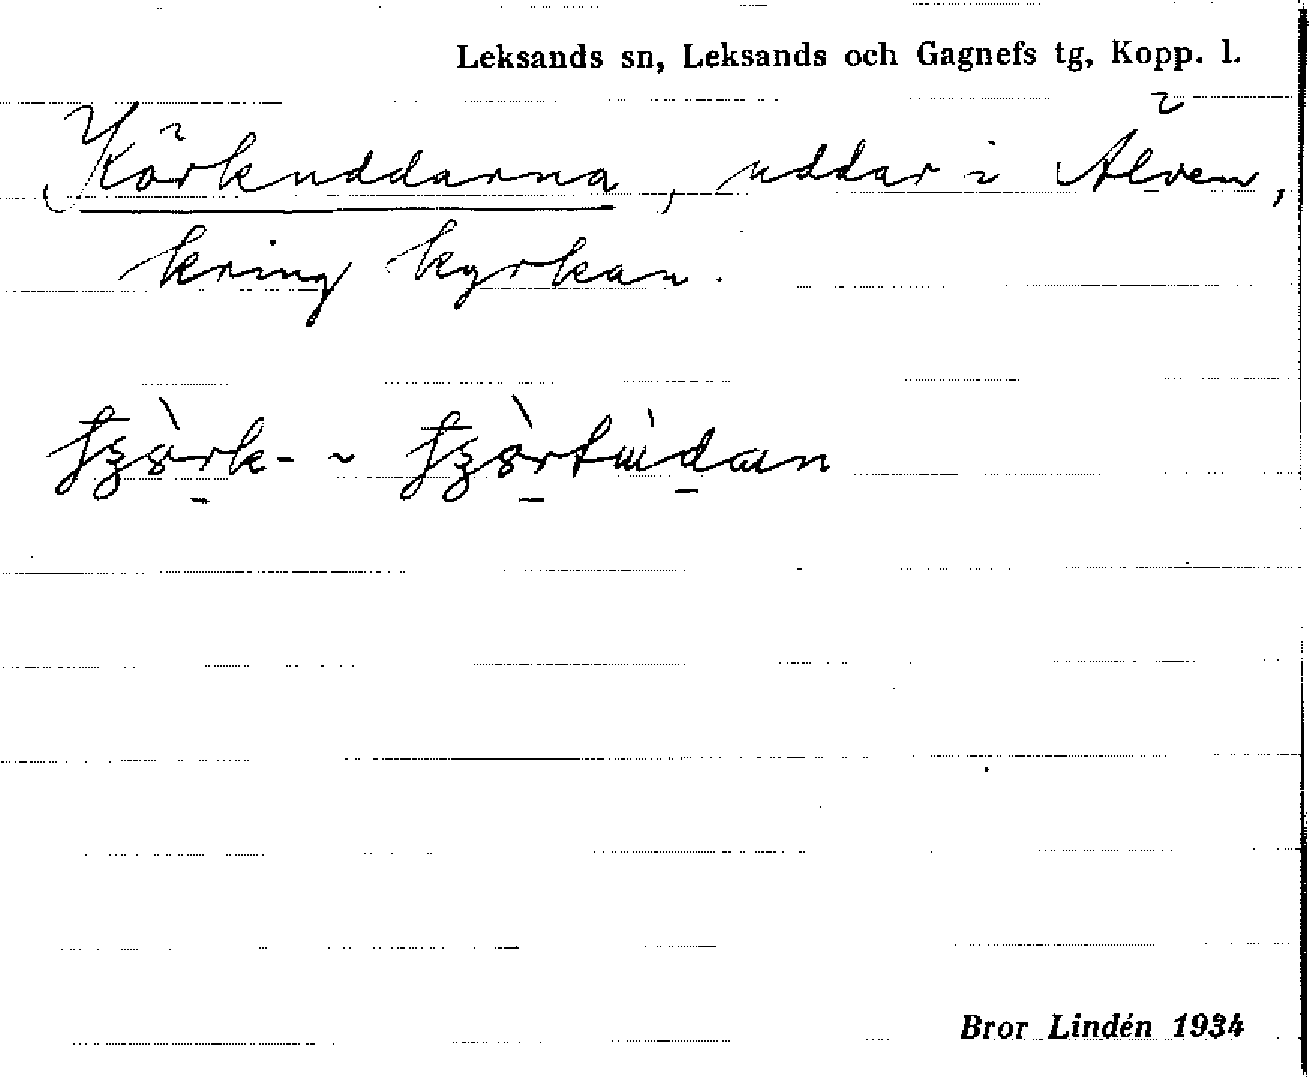 Leksands sn, Leksands och Gagnefs tg, Kopp. l.
Körkuddarna, uddar i Älven,
kring kyrkan.
Bror Lindén 1934